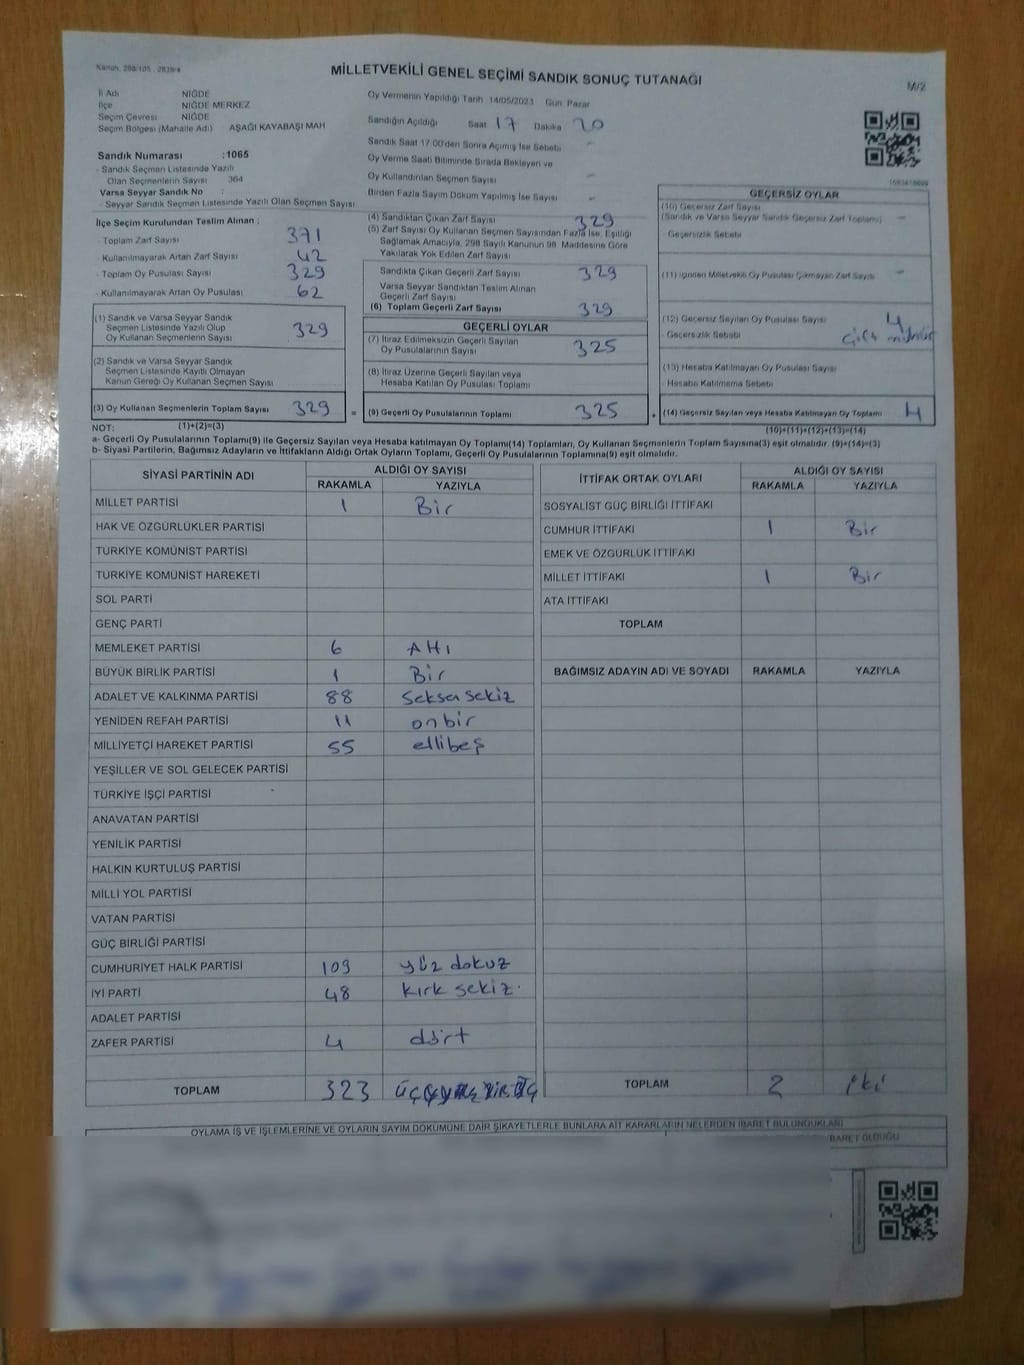 Kanun. 298/105 . 2839/4
MİLLETVEKİLİ GENEL SEÇİMİ SANDIK SONUÇ TUTANAĞI
M/2
İl Adı NİĞDE
İlçe NİĞDE MERKEZ
Seçim Çevresi NİĞDE
Seçim Bölgesi (Mahalle Adı) AŞAĞI KAYABAŞI MAH
Sandık Numarası :1065
- Sandık Seçmen Listesinde Yazılı
Olan Seçmenlerin Sayısı 364
Varsa Seyyar Sandık No :
- Seyyar Sandık Seçmen Listesinde Yazılı Olan Seçmen Sayısı
İlçe Seçim Kurulundan Teslim Alınan :
- Toplam Zarf Sayısı 371
- Kullanılmayarak Artan Zarf Sayısı 42
- Toplam Oy Pusulası Sayısı 329
- Kullanılmayarak Artan Oy Pusulası 62
(1) Sandık ve Varsa Seyyar Sandık
Seçmen Listesinde Yazılı Olup
Oy Kullanan Seçmenlerin Sayısı 329
(2) Sandık ve Varsa Seyyar Sandık
Seçmen Listesinde Kayıtlı Olmayan
Kanun Gereği Oy Kullanan Seçmen Sayısı
(3) Oy Kullanan Seçmenlerin Toplam Sayısı 329 =
(1)+(2)=(3)
Oy Vermenin Yapıldığı Tarih 14/05/2023 Gün Pazar
Sandığın Açıldığı Saat 17 Dakika 20
Sandık Saat 17:00'den Sonra Açılmış İse Sebebi -
Oy Verme Saati Bitiminde Sırada Bekleyen ve
Oy Kullandırılan Seçmen Sayısı -
Birden Fazla Sayım Döküm Yapılmış İse Sayısı -
(4) Sandıktan Çıkan Zarf Sayısı 329
(5) Zarf Sayısı Oy Kullanan Seçmen Sayısından Fazla İse, Eşitliği
Sağlamak Amacıyla, 298 Sayılı Kanunun 98. Maddesine Göre
Yakılarak Yok Edilen Zarf Sayısı
Sandıkta Çıkan Geçerli Zarf Sayısı 329
Varsa Seyyar Sandıktan Teslim Alınan
Geçerli Zarf Sayısı
(6) Toplam Geçerli Zarf Sayısı 329
GEÇERLİ OYLAR
(7) İtiraz Edilmeksizin Geçerli Sayılan
Oy Pusulalarının Sayısı 325
(8) İtiraz Üzerine Geçerli Sayılan veya
Hesaba Katılan Oy Pusulası Toplamı
(9) Geçerli Oy Pusulalarının Toplamı 325 +
GEÇERSİZ OYLAR
(10) Geçersiz Zarf Sayısı
(Sandık ve Varsa Seyyar Sandık Geçersiz Zarf Toplamı) -
Geçersizlik Sebebi
(11) İçinden Milletvekili Oy Pusulası Çıkmayan Zarf Sayısı -
(12) Geçersiz Sayılan Oy Pusulası Sayısı 4
Geçersizlik Sebebi Çift mühür
(13) Hesaba Katılmayan Oy Pusulası Sayısı
Hesaba Katılmama Sebebi
(14) Geçersiz Sayılan veya Hesaba Katılmayan Oy Toplamı 4
(10)+(11)+(12)+(13)=(14)
NOT:
a- Geçerli Oy Pusulalarının Toplamı(9) ile Geçersiz Sayılan veya Hesaba katılmayan Oy Toplamı(14) Toplamları, Oy Kullanan Seçmenlerin Toplam Sayısına(3) eşit olmalıdır. (9)+(14)=(3)
b- Siyasi Partilerin, Bağımsız Adayların ve İttifakların Aldığı Ortak Oyların Toplamı, Geçerli Oy Pusulalarının Toplamına(9) eşit olmalıdır.
SİYASİ PARTİNİN ADI ALDIĞI OY SAYISI
RAKAMLA YAZIYLA
MİLLET PARTİSİ 1 Bir
HAK VE ÖZGÜRLÜKLER PARTİSİ
TÜRKİYE KOMÜNİST PARTİSİ
TÜRKİYE KOMÜNİST HAREKETİ
SOL PARTİ
GENÇ PARTİ
MEMLEKET PARTİSİ 6 Altı
BÜYÜK BİRLİK PARTİSİ 1 Bir
ADALET VE KALKINMA PARTİSİ 88 Seksen Sekiz
YENİDEN REFAH PARTİSİ 11 on bir
MİLLİYETÇİ HAREKET PARTİSİ 55 ellibeş
YEŞİLLER VE SOL GELECEK PARTİSİ
TÜRKİYE İŞÇİ PARTİSİ
ANAVATAN PARTİSİ
YENİLİK PARTİSİ
HALKIN KURTULUŞ PARTİSİ
MİLLİ YOL PARTİSİ
VATAN PARTİSİ
GÜÇ BİRLİĞİ PARTİSİ
CUMHURİYET HALK PARTİSİ 109 yüz dokuz
İYİ PARTİ 48 kırk sekiz
ADALET PARTİSİ
ZAFER PARTİSİ 4 dört
TOPLAM 323
İTTİFAK ORTAK OYLARI ALDIĞI OY SAYISI
RAKAMLA YAZIYLA
SOSYALİST GÜÇ BİRLİĞİ İTTİFAKI
CUMHUR İTTİFAKI 1 Bir
EMEK VE ÖZGÜRLÜK İTTİFAKI
MİLLET İTTİFAKI 1 Bir
ATA İTTİFAKI
TOPLAM
BAĞIMSIZ ADAYIN ADI VE SOYADI RAKAMLA YAZIYLA
TOPLAM 2 iki
OYLAMA İŞ VE İŞLEMLERİNE VE OYLARIN SAYIM DÖKÜMÜNE DAİR ŞİKAYETLERLE BUNLARA AİT KARARLARIN NELERDEN İBARET BULUNDUKLARI
İBARET OLDUĞU